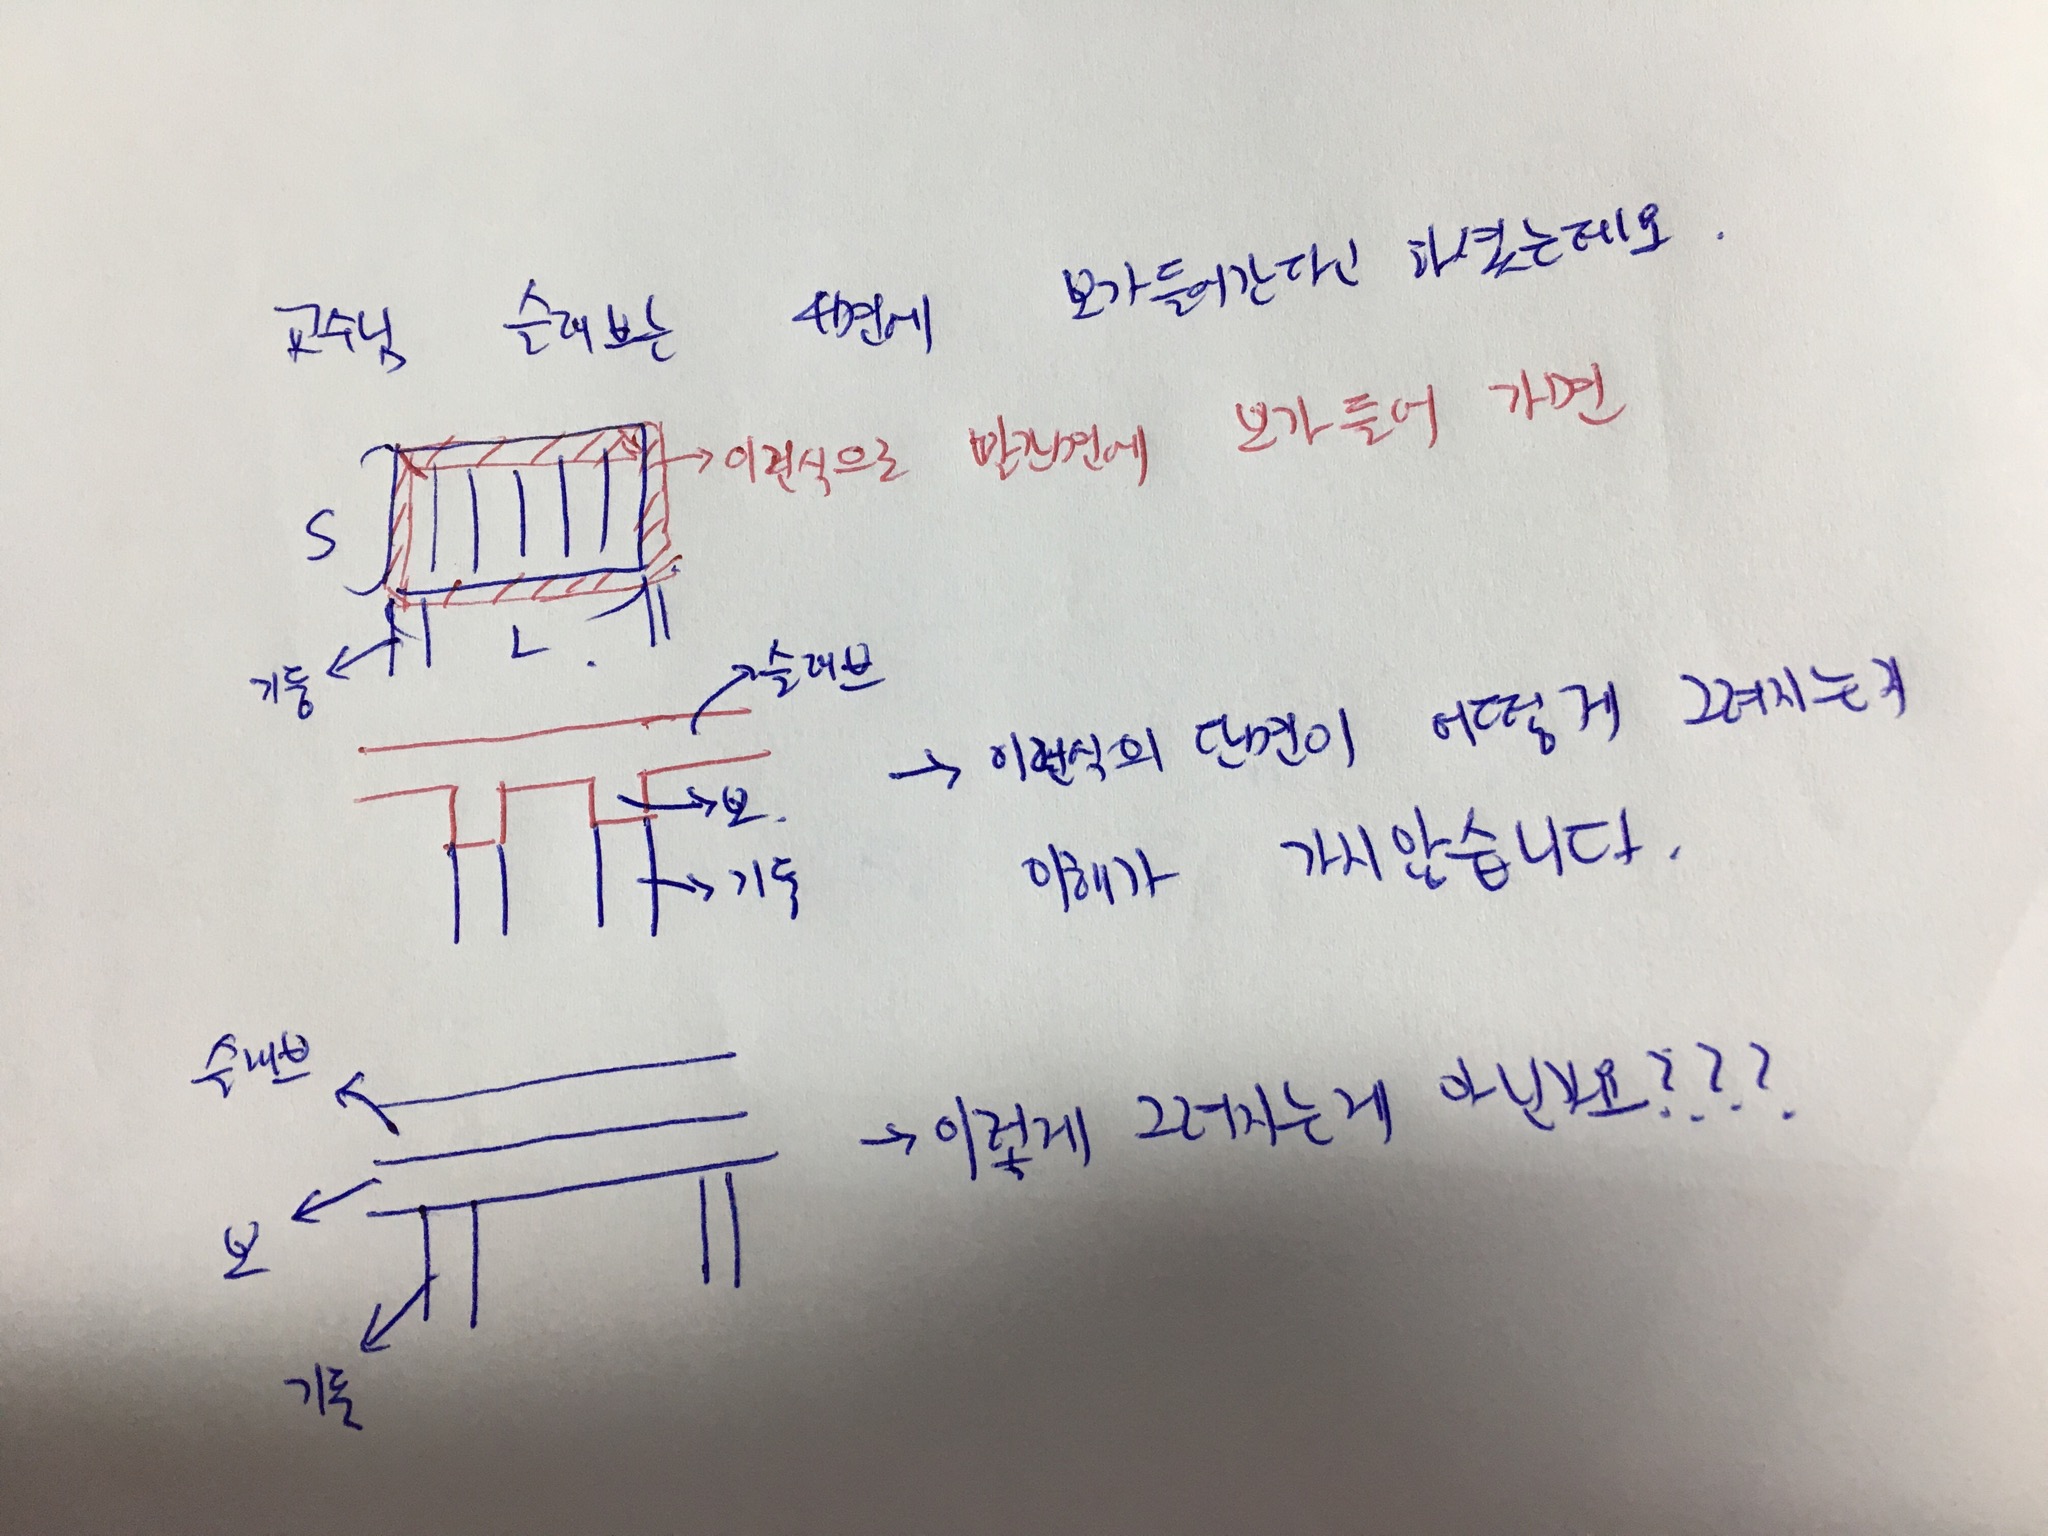 교수님 슬래브는 4면에 보가들어간다고 하셨는데요.
이런식으로 맡진면에 보가들어 가면
S
L
기둥
슬래브
보.
기둥
→ 이런식의 단면이 어떻게 그려지는지
이해가 가지않습니다.
슬래브
→ 이렇게 그려지는게 아닌가요????
보
기둥